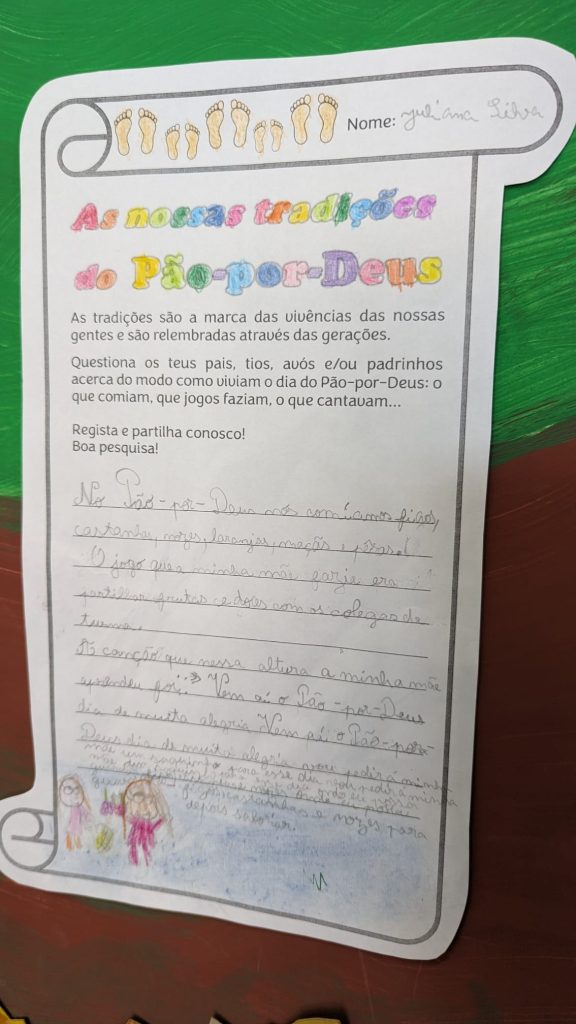 Nome: Juliana Silva
As nossas tradições
do Pão-por-Deus
As tradições são a marca das vivências das nossas
gentes e são relembradas através das gerações.
Questiona os teus pais, tios, avós e/ou padrinhos
acerca do modo como viviam o dia do Pão-por-Deus: o
que comiam, que jogos faziam, o que cantavam...
Regista e partilha conosco!
Boa pesquisa!
No Pão-por-Deus nós comíamos figos,
castanhas, nozes, laranjas, maçãs
O jogo que a minha mãe fazia era
partilhar frutas e doces com os colegas de
turma.
A canção que nessa altura a minha mãe
aprendeu foi: Vem aí o Pão-por-Deus
dia de muita alegria Vem aí o Pão-por-
Deus dia de muita alegria vou pedir á minha
mãe um saquinho para esse dia vou pedir á minha
mãe
castanhas e nozes para
depois saboriar.